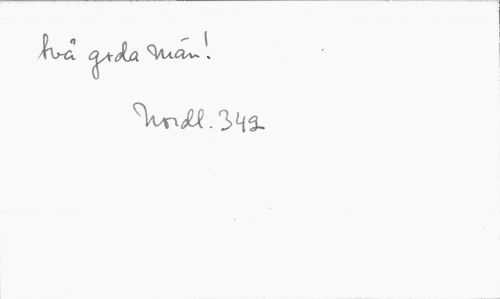 två goda män!
Nordl. 342